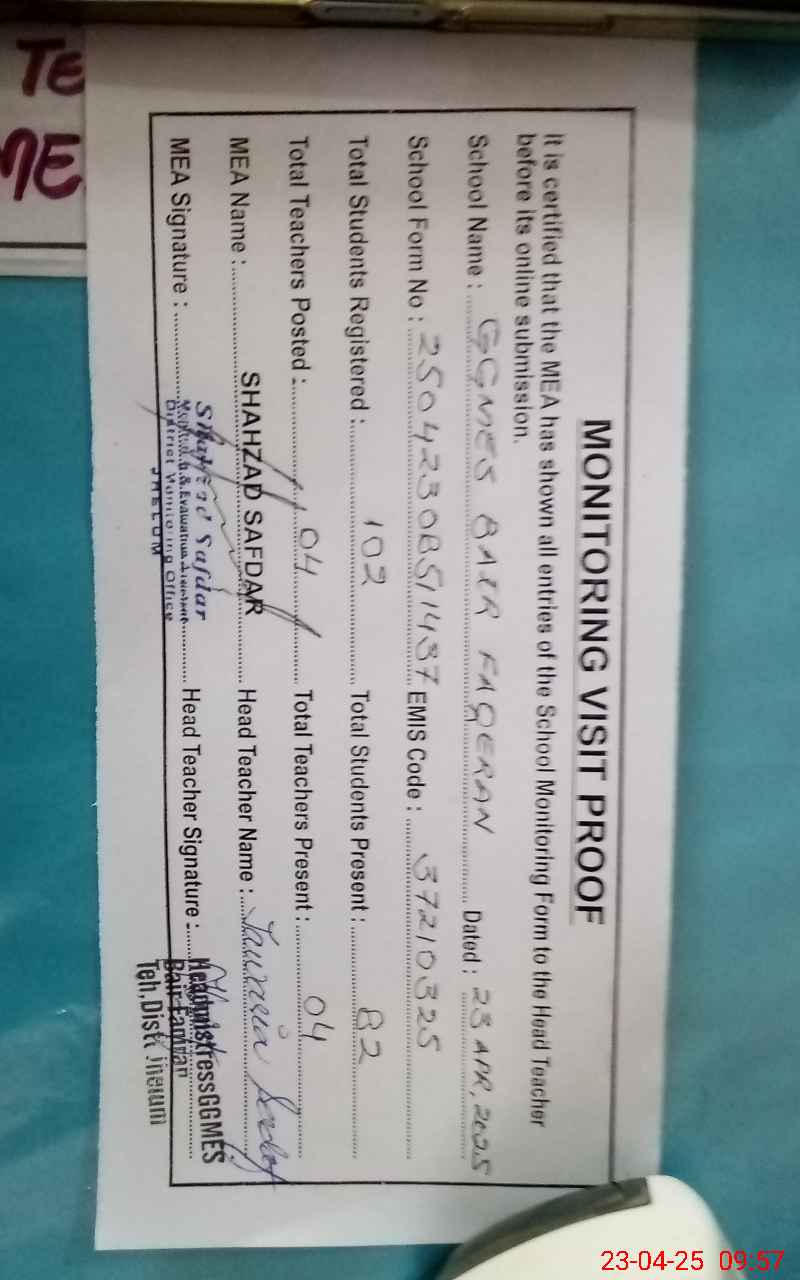 MONITORING VISIT PROOF
It is certified that the MEA has shown all entries of the School Monitoring Form to the Head Teacher
before its online submission.
School Name : GGMES BAER FAQERAN Dated : 23 APR, 2025
School Form No : EMIS Code : 37210325
Total Students Registered : 102 Total Students Present : 82
Total Teachers Posted : 04 Total Teachers Present : 04
MEA Name : SHAHZAD SAFDAR Head Teacher Name :
MEA Signature : Shahzad Safdar Head Teacher Signature : Headmistress GGMES
Monitoring & Evaluation Assistant
District Monitoring Office
JHELUM
Teh, Distt Jhelum
TE
ME
23-04-25 09:57